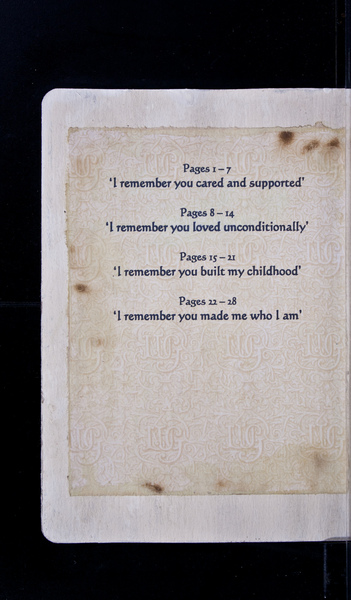 Pages 1 – 7
‘I remember you cared and supported’
Pages 8 – 14
‘I remember you loved unconditionally’
Pages 15 – 21
‘I remember you built my childhood’
Pages 22 – 28
‘I remember you made me who I am’